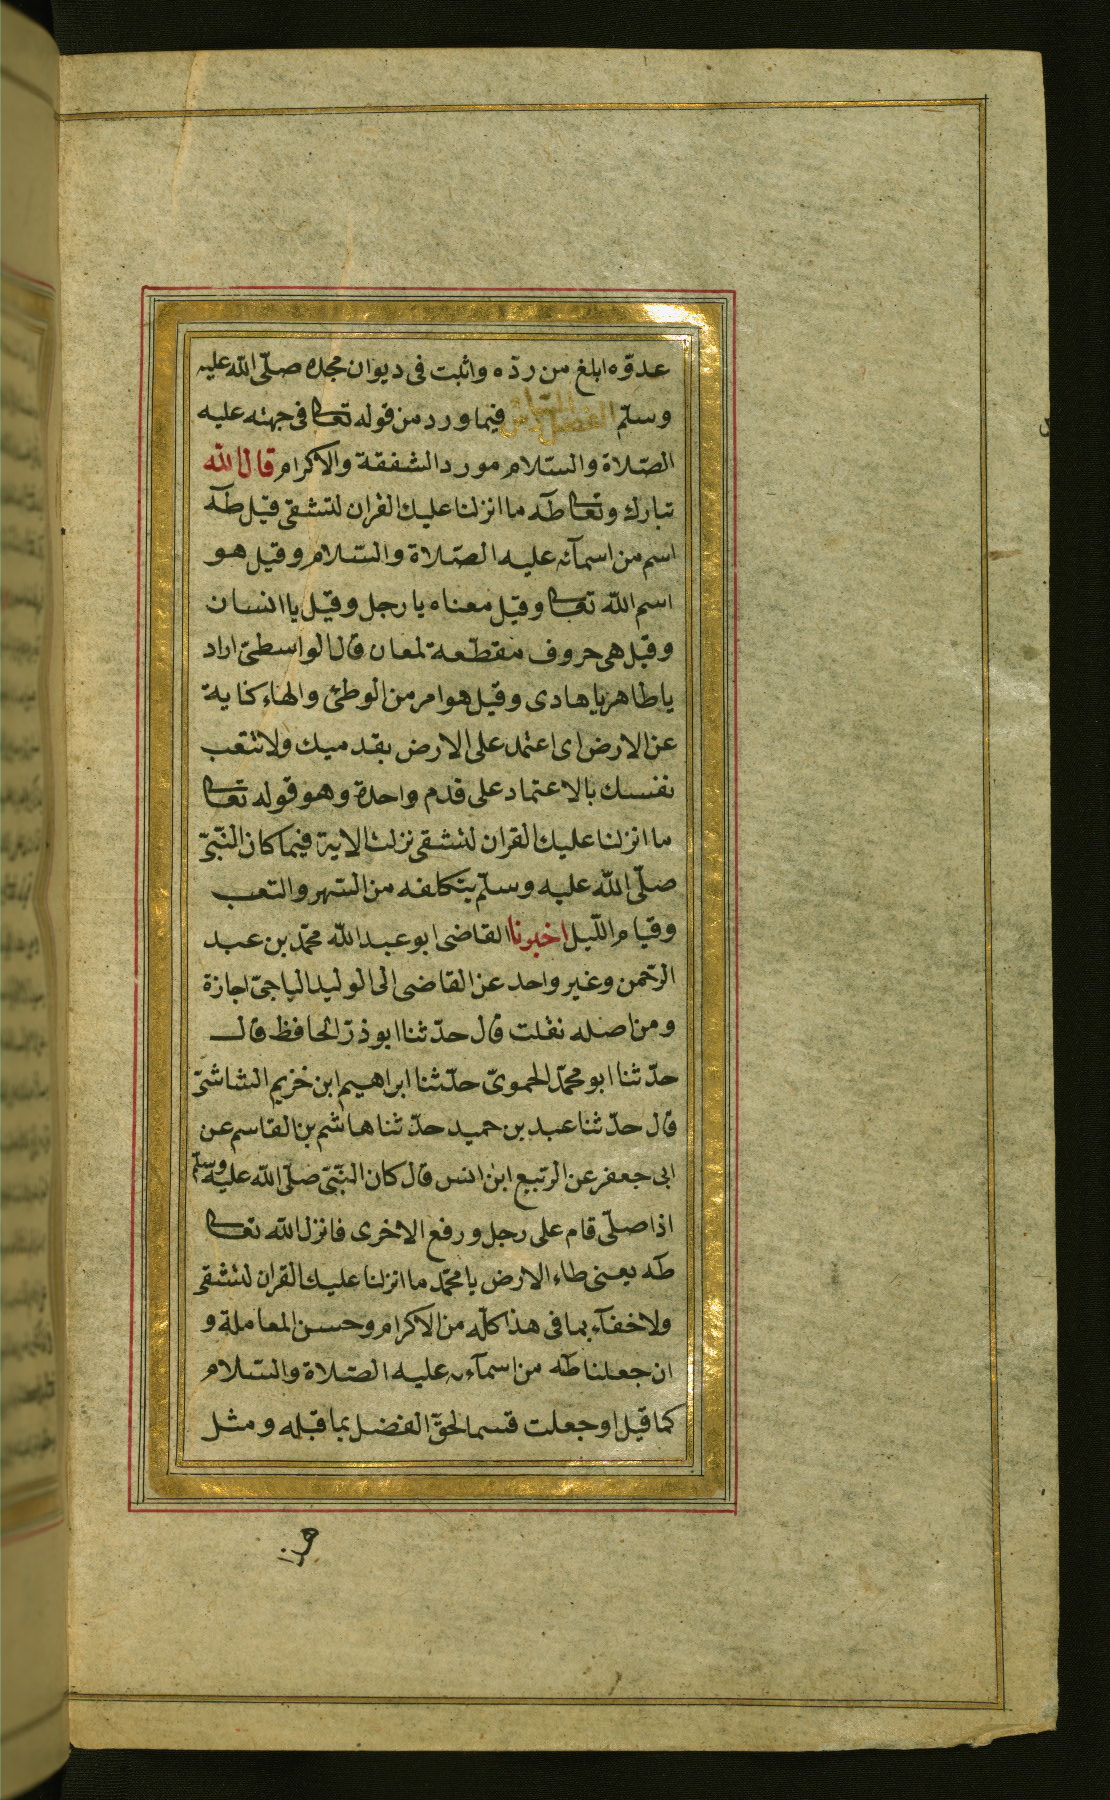 عدوّه ابلغ من ردّه واثبت فى ديوان مجده صلّى اللّه عليه
وسلّم الفصل السّادس فيما ورد من قوله تعا فى جهته عليه
الصّلاة والسّلام مورد الشفقة والاكرام قال اللّه
تبارك وتعا طٓه ما انزلنا عليك القران لتشقى قيل طٓه
اسم من اسمآئه عليه الصّلاة والسّلام وقيل هو
اسم اللّه تعا وقيل معناه يا رجل وقيل يا انسان
وقيل هى حروف مقطّعة لمعان قال الواسطىّ اراد
يا طاهر يا هادى وقيل هو امر من الوطئ والهاء كناية
عن الارض اى اعتمد على الارض بقدميك ولا تتعب
نفسك بالاعتماد على قدم واحدة وهو قوله تعا
ما انزلنا عليك القران لتشقى نزلت الاية فيما كان النّبىّ
صلّى اللّه عليه وسلّم يتكلفه من السّهر والتعب
وقيام اللّيل اخبرنا القاضى ابو عبد اللّه محمّد بن عبد
الرّحمن وغير واحد عن القاضى الى الوليد الباجىّ اجازة
ومن اصله نقلت قال حدّثنا ابو ذرّ الحافظ قال
حدّثنا ابو محمّد الحموىّ حدّثنا ابراهيم ابن خزيم الشاشىّ
قال حدّثنا عبد بن حميد حدّثنا هاشم بن القاسم عن
ابى جعفر عن الربيع ابن انس قال كان النّبىّ صلّى اللّه عليه وسلّم
اذا صلّى قام على رجل ورفع الاخرى فانزل اللّه تعا
طٓه يعنى طاء الارض يا محمّد ما انزلنا عليك القران لتشقى
ولا خفآء بما فى هذا كلّه من الاكرام وحسن المعاملة و
ان جعلنا طٓه من اسمآءه عليه الصّلاة والسّلام
كما قيل او جعلت قسما لحق الفضل بما قبله ومثل
هذا